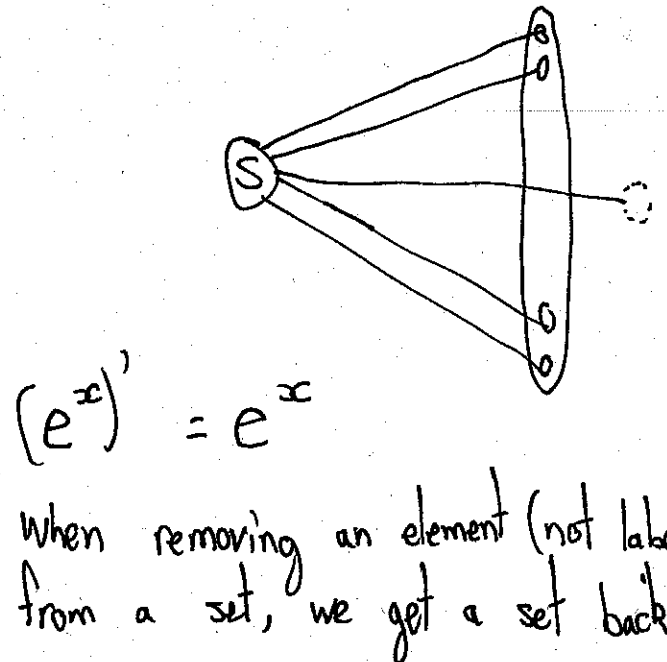 S
(eˣ)' = eˣ
When removing an element (not
from a set, we get a set back